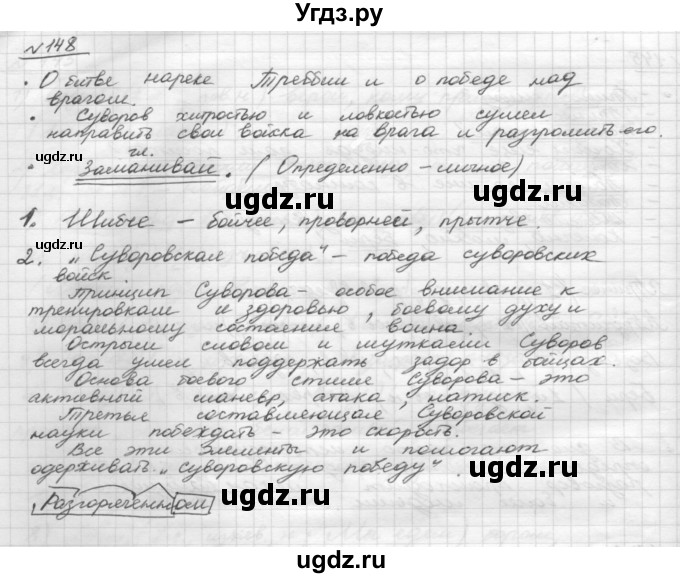 Угдз.ру
№148
• О битве на реке Треббии и о победе над
врагом.
• Суворов хитростью и ловкостью сумел
направить свои войска на врага и разгромить его.
гл.
• Заманивай. (Определенно – личное)
ugdz.ru
ugdz.ru
1. Шибче – бойчее, проворней, прытче.
ugdz.ru
2. „Суворовская победа" – победа суворовских
войск.
Принцип Суворова – особое внимание к
тренировкам и здоровью, боевому духу и
моральному состоянию воина.
ugdz.ru
ugdz.ru
Острым словом и шутками Суворов
всегда умел поддержать задор в бойцах.
Основа боевого стиля Суворова – это
активный маневр, атака, натиск.
ugdz.ru
Третья составляющая Суворовской
науки побеждать – это скорость.
Все эти элементы и помогают
одерживать „суворовскую победу".
ugdz.ru
Разгоряченном
ugdz.ru
ugdz.ru
ugdz.ru